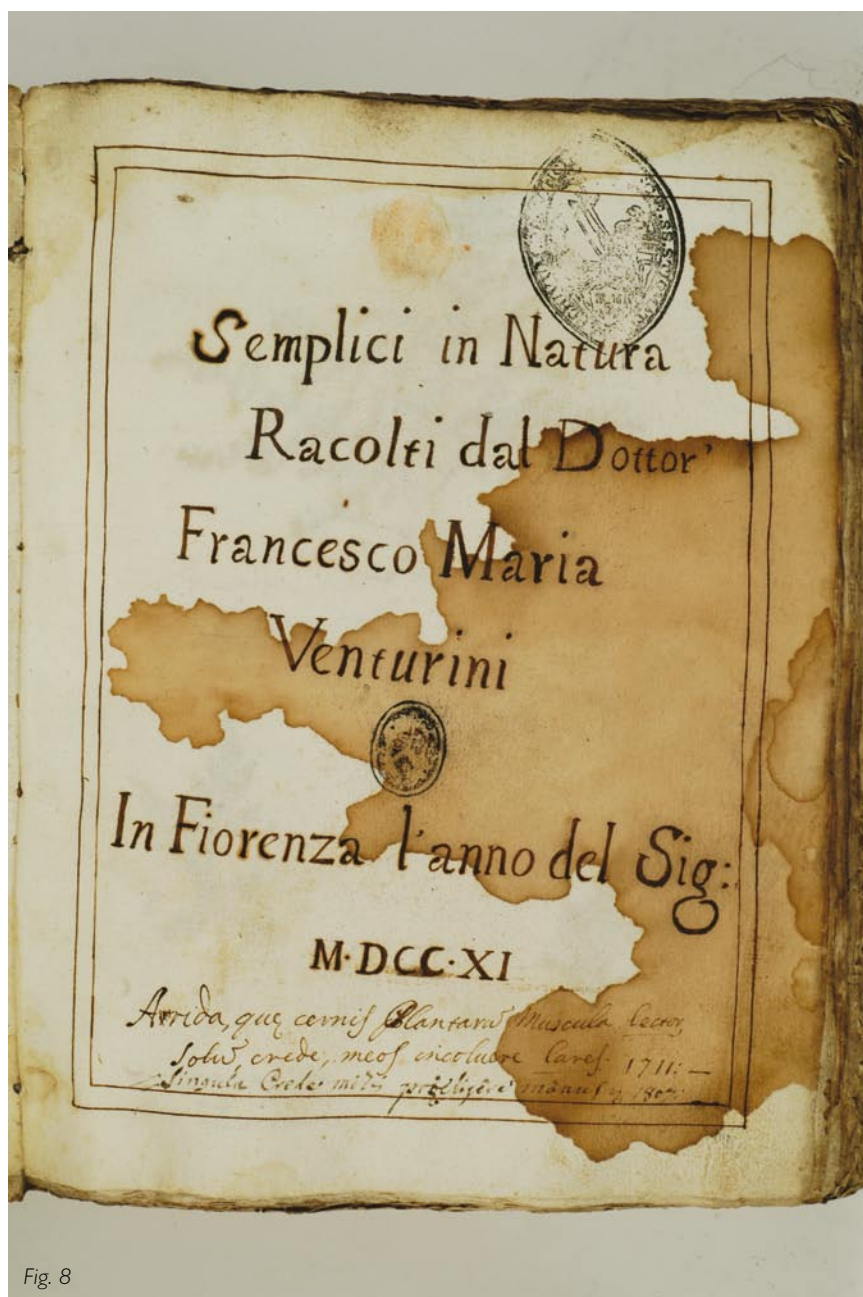 Semplici in Natura
Racolti dal Dottor'
Francesco Maria
Venturini
In Fiorenza l'anno del Sig:
M·DCC·XI
Arrida, quę cernis Plantarũ Muscula lector,
Solũ, crede, meos incoluere Lares. 1711:—
Singula Crede mihi manus
Fig. 8